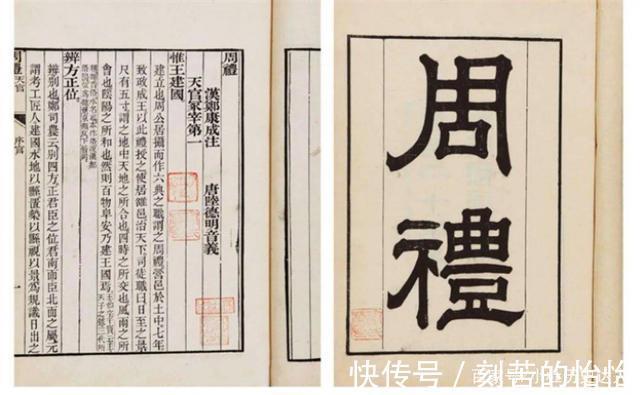 周禮
漢鄭康成注
唐陸德明音義
天官冢宰第一
惟王建國
建立也周公居攝而作六典之職謂之周禮營邑於土中七年
致政成王以此禮授之使居雒邑治天下司徒職曰日至之景
尺有五寸謂之地中天地之所合也四時之所交也風雨之所
會也陰陽之所和也然則百物阜安乃建王國焉
辨方正位
辨別也鄭司農云別四方正君臣之位君南面臣北面之屬元
謂考工匠人建國水地以縣置槷以縣視以景爲規識日出之
周禮 天官 序官 一
周禮
快传号／刻苦的怡怡